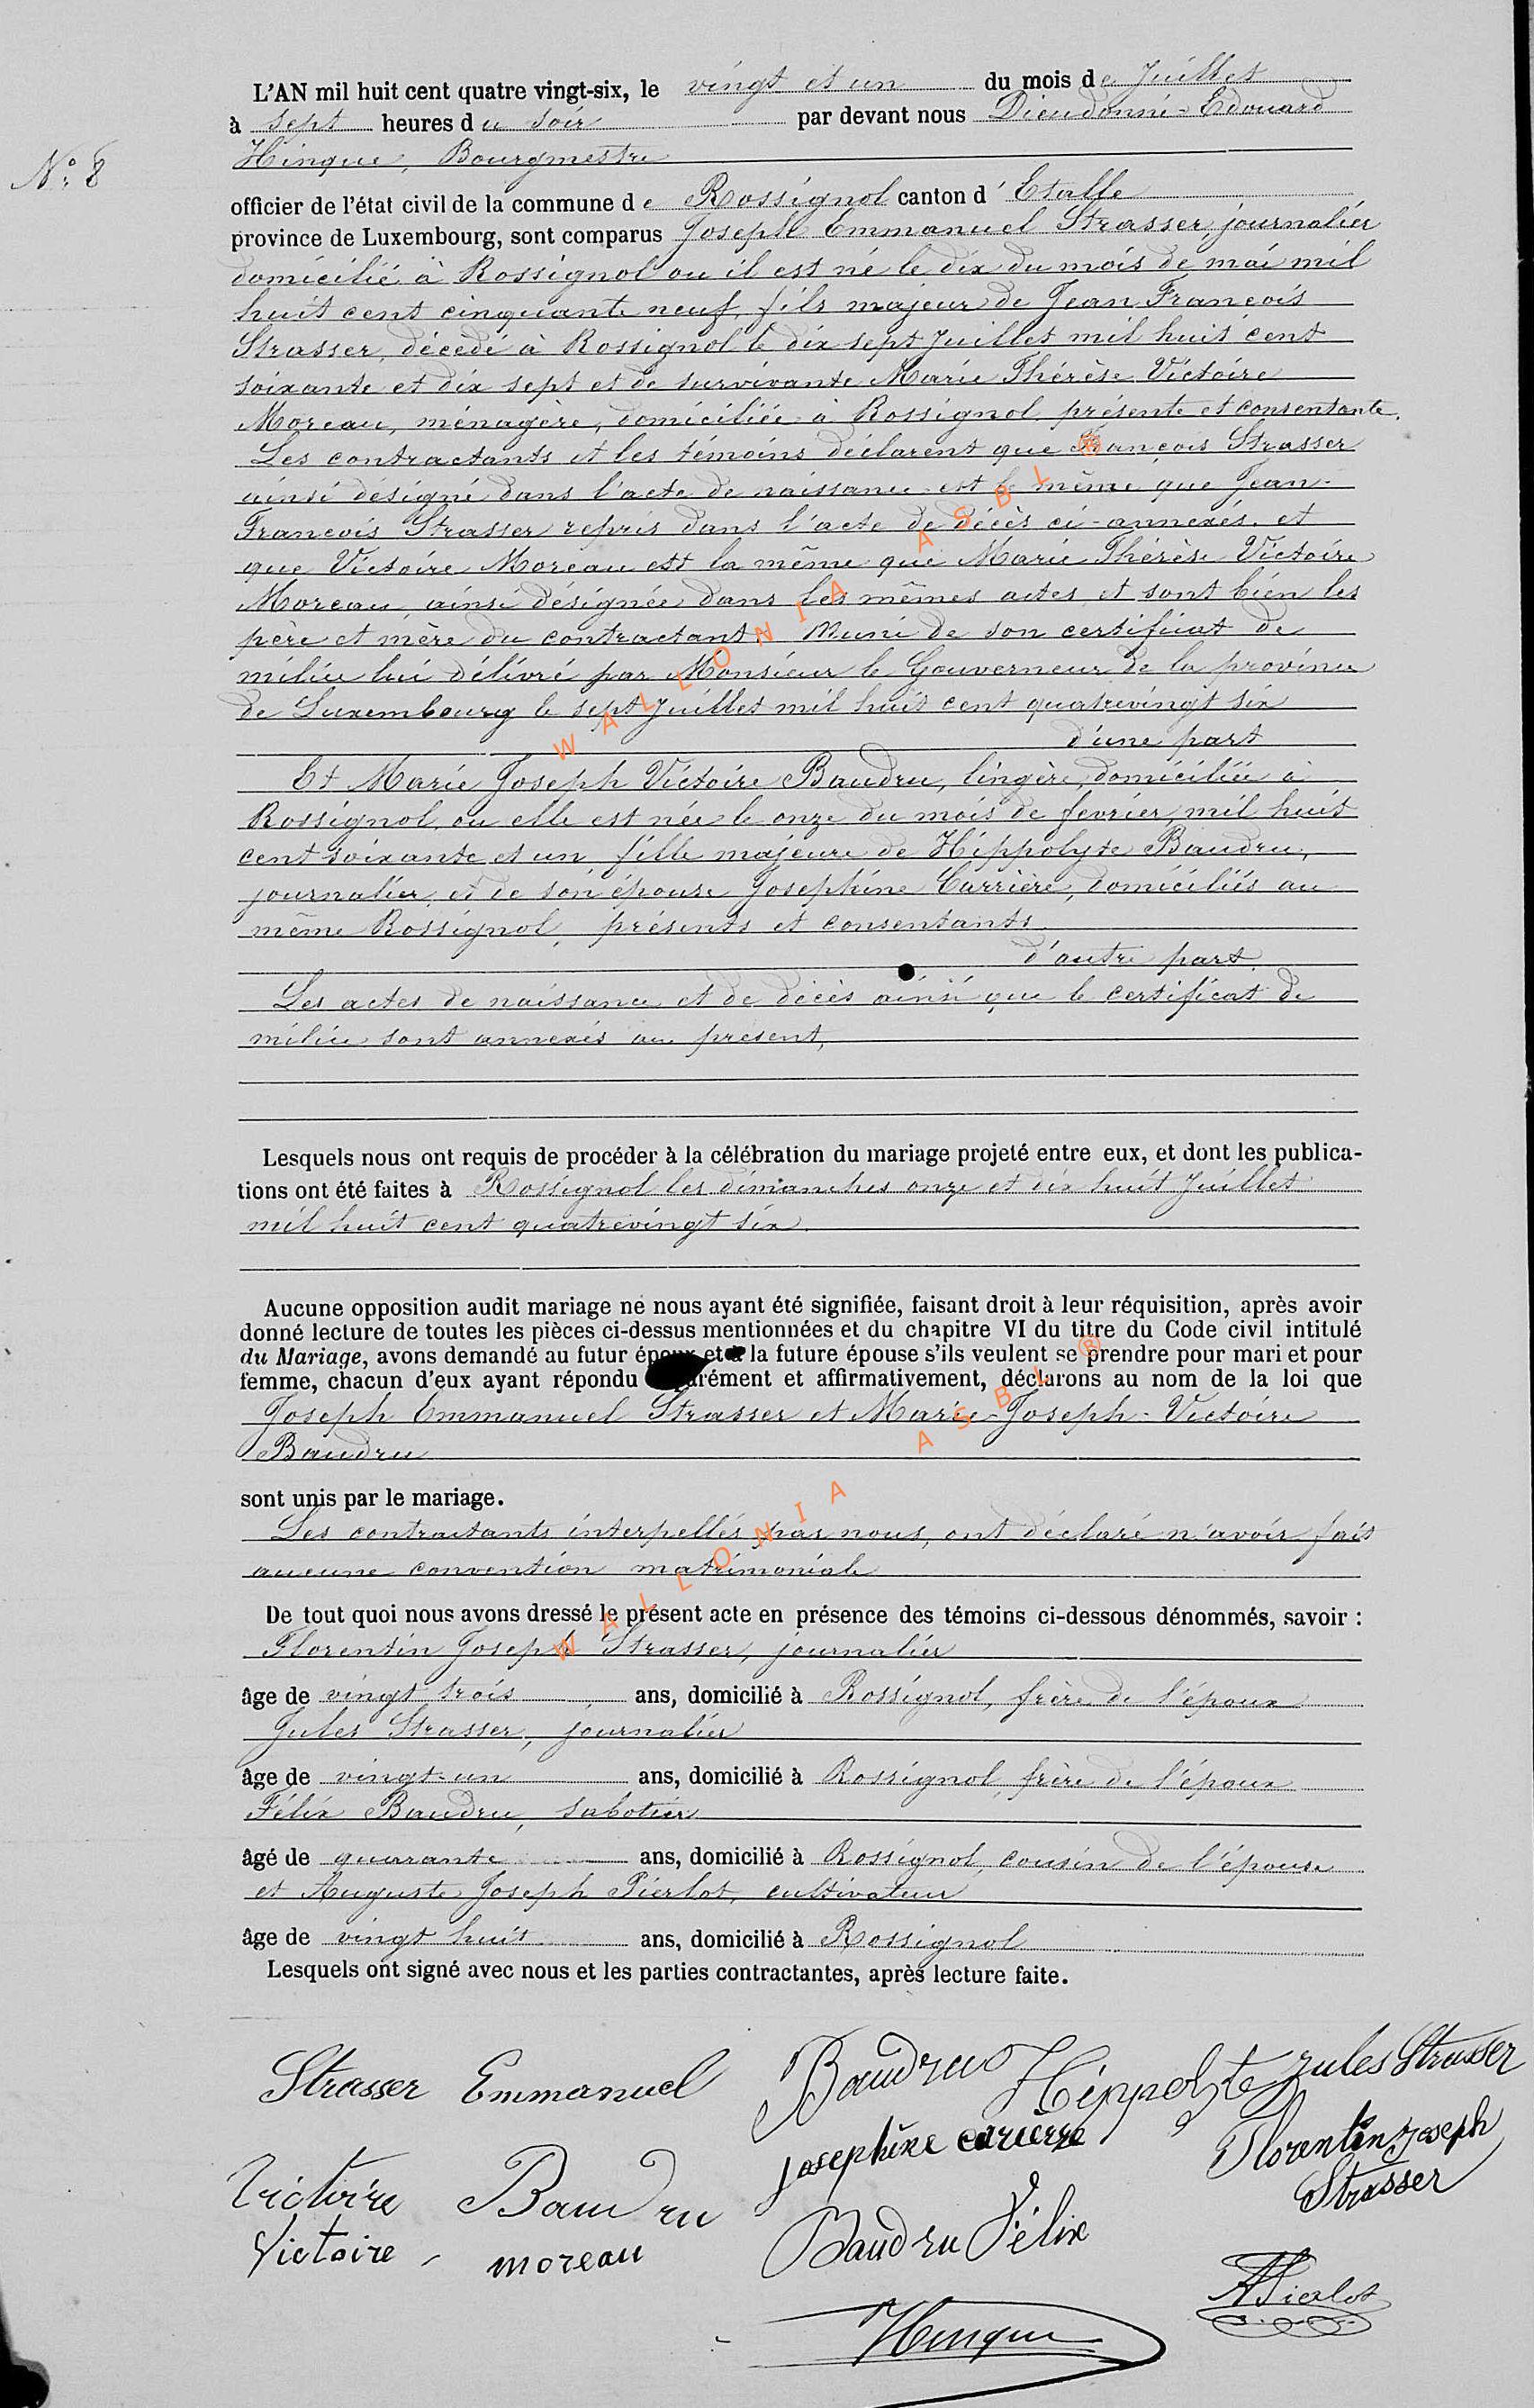 L'AN mil huit cent quatre vingt-six, le vingt et un du mois de Juillet
à sept heures du soir par devant nous Dieudonné-Edouard
Hinque, Bourgmestre
N° 8
officier de l'état civil de la commune de Rossignol canton d'Etalle
province de Luxembourg, sont comparus Joseph Emmanuel Strasser, journalier
domicilié à Rossignol ou il est né le dix du mois de mai mil
huit cent cinquante neuf, fils majeur de Jean François
Strasser, décédé à Rossignol le dix sept Juillet mil huit cent
soixante et dix sept et de survivante Marie Thérèse Victoire
Moreau, ménagère, domiciliée à Rossignol présente et consentante.
Les contractants et les témoins déclarent que François Strasser
ainsi désigné dans l'acte de naissance est le même que Jean-
François Strasser repris dans l'acte de décès ci-annexés. et
que Victoire Moreau est la même que Marie Thérèse Victoire
Moreau ainsi désignée dans les mêmes actes et sont bien les
père et mère du contractant. Muni de son certificat de
milice lui délivré par Monsieur le Gouverneur de la province
de Luxembourg le sept Juillet mil huit cent quatrevingt six
d'une part
Et Marie Joseph Victoire Baudru, lingère, domiciliée à
Rossignol, ou elle est née le onze du mois de fevrier, mil huit
cent soixante et un fille majeure de Hippolyte Baudru,
journalier, et de son épouse Josephine Carrière, domiciliés au
même Rossignol, présents et consentants
d'autre part.
Les actes de naissance et de décès ainsi que le certificat de
milice sont annexés au présent,
Lesquels nous ont requis de procéder à la célébration du mariage projeté entre eux, et dont les publica-
tions ont été faites à Rossignol les dimanches onze et dix huit Juillet
mil huit cent quatrevingt six.
Aucune opposition audit mariage ne nous ayant été signifiée, faisant droit à leur réquisition, après avoir
donné lecture de toutes les pièces ci-dessus mentionnées et du chapitre VI du titre du Code civil intitulé
du Mariage, avons demandé au futur époux et à la future épouse s'ils veulent se prendre pour mari et pour
femme, chacun d'eux ayant répondu rément et affirmativement, déclarons au nom de la loi que
Joseph Emmanuel Strasser et Marie-Joseph-Victoire
Baudru
sont unis par le mariage.
Les contractants interpellés par nous, ont déclaré n'avoir fait
aucune convention matrimoniale
De tout quoi nous avons dressé le présent acte en présence des témoins ci-dessous dénommés, savoir :
Florentin Joseph Strasser, journalier
âge de vingt trois ans, domicilié à Rossignol, frère de l'époux
Jules Strasser, journalier
âge de vingt-un ans, domicilié à Rossignol, frère de l'époux
Félix Baudru, sabotier
âgé de quarante ans, domicilié à Rossignol, cousin de l'épouse
et Auguste Joseph Pierlot, cultivateur
âge de vingt huit ans, domicilié à Rossignol
Lesquels ont signé avec nous et les parties contractantes, après lecture faite.
Strasser Emmanuel
Baudru Hippolyte
Jules Strasser
Josephine carierre
Florentin Joseph
Strasser
Victoire Baudru
Victoire moreau
Baudru Félix
APierlot
Hinque
WALLONIA ASBL ®
WALLONIA ASBL ®